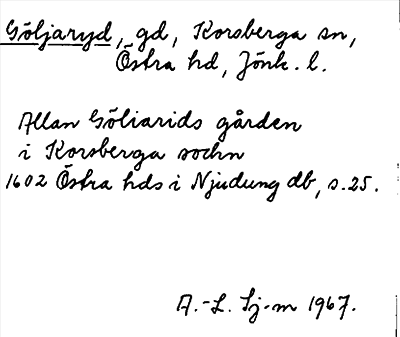 Göljaryd, gd, Korsberga sn,
Östra hd, Jönk. l.
Allan Göliarids gården
i Korsberga sochn
1602 Östra hds i Njudung db, s. 25.
A.-L. Sj-m 1967.